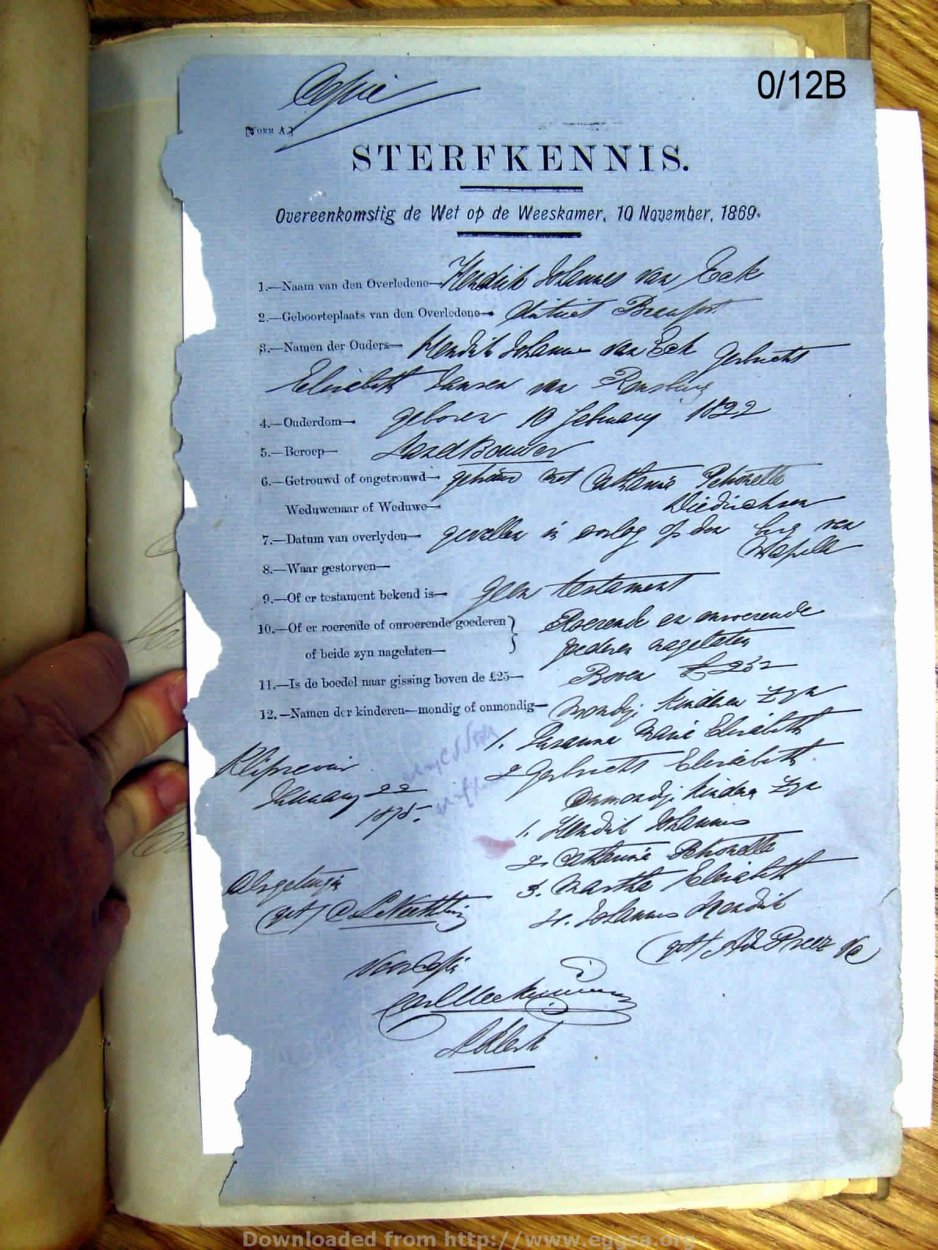 Copie
0/12B
[FORM A.]
STERFKENNIS.
Overeenkomstig de Wet op de Weeskamer, 10 November, 1869.
1.—Naam van den Overledene— Hendrik Johannes van Eck
2.—Geboorteplaats van den Overledene— district Beaufort
3.—Namen der Ouders— Hendrik Johannes van Eck Gerbrecht
Elizabeth Jansen van Rensburg
4.—Ouderdom— geboren 10 february 1822
5.—Beroep— Landbouwer
6.—Getrouwd of ongetrouwd— gehuwd met Catharina Petronella
Weduwenaar of Weduwe— Diedrichsen
7.—Datum van overlyden— gevallen in oorlog op den berg van
Mapella
8.—Waar gestorven—
9.—Of er testament bekend is— geen testament
10.—Of er roerende of onroerende goederen } Roerende en onroerende
of beide zyn nagelaten— goederen nagelaten
11.—Is de boedel naar gissing boven de £25— Boven £25
12.—Namen der kinderen—mondig of onmondig— mondig kinderen zyn
1. Susanna Maria Elizabeth
2 Gerbrecht Elizabeth
Kliprevier
January 22
Onmondig kinderen zyn
1. Hendrik Johannes
2. Catharina Petronella
3. Martha Elizabeth
4. Johannes Hendrik
Als getuige
(get)
(get) du Preez Vc
Voor Copie
Klerk
Downloaded from http://www.eggsa.org